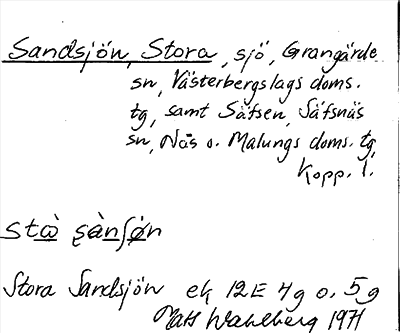 Sandsjön, Stora, sjö, Grangärde
sn, Västerbergslags doms.
tg, samt Säfsen, Säfsnäs
sn, Nås o. Malungs doms. tg,
Kopp. l.
Stora Sandsjön ek 12E 4g o. 5g
Mats Wahlberg 1971